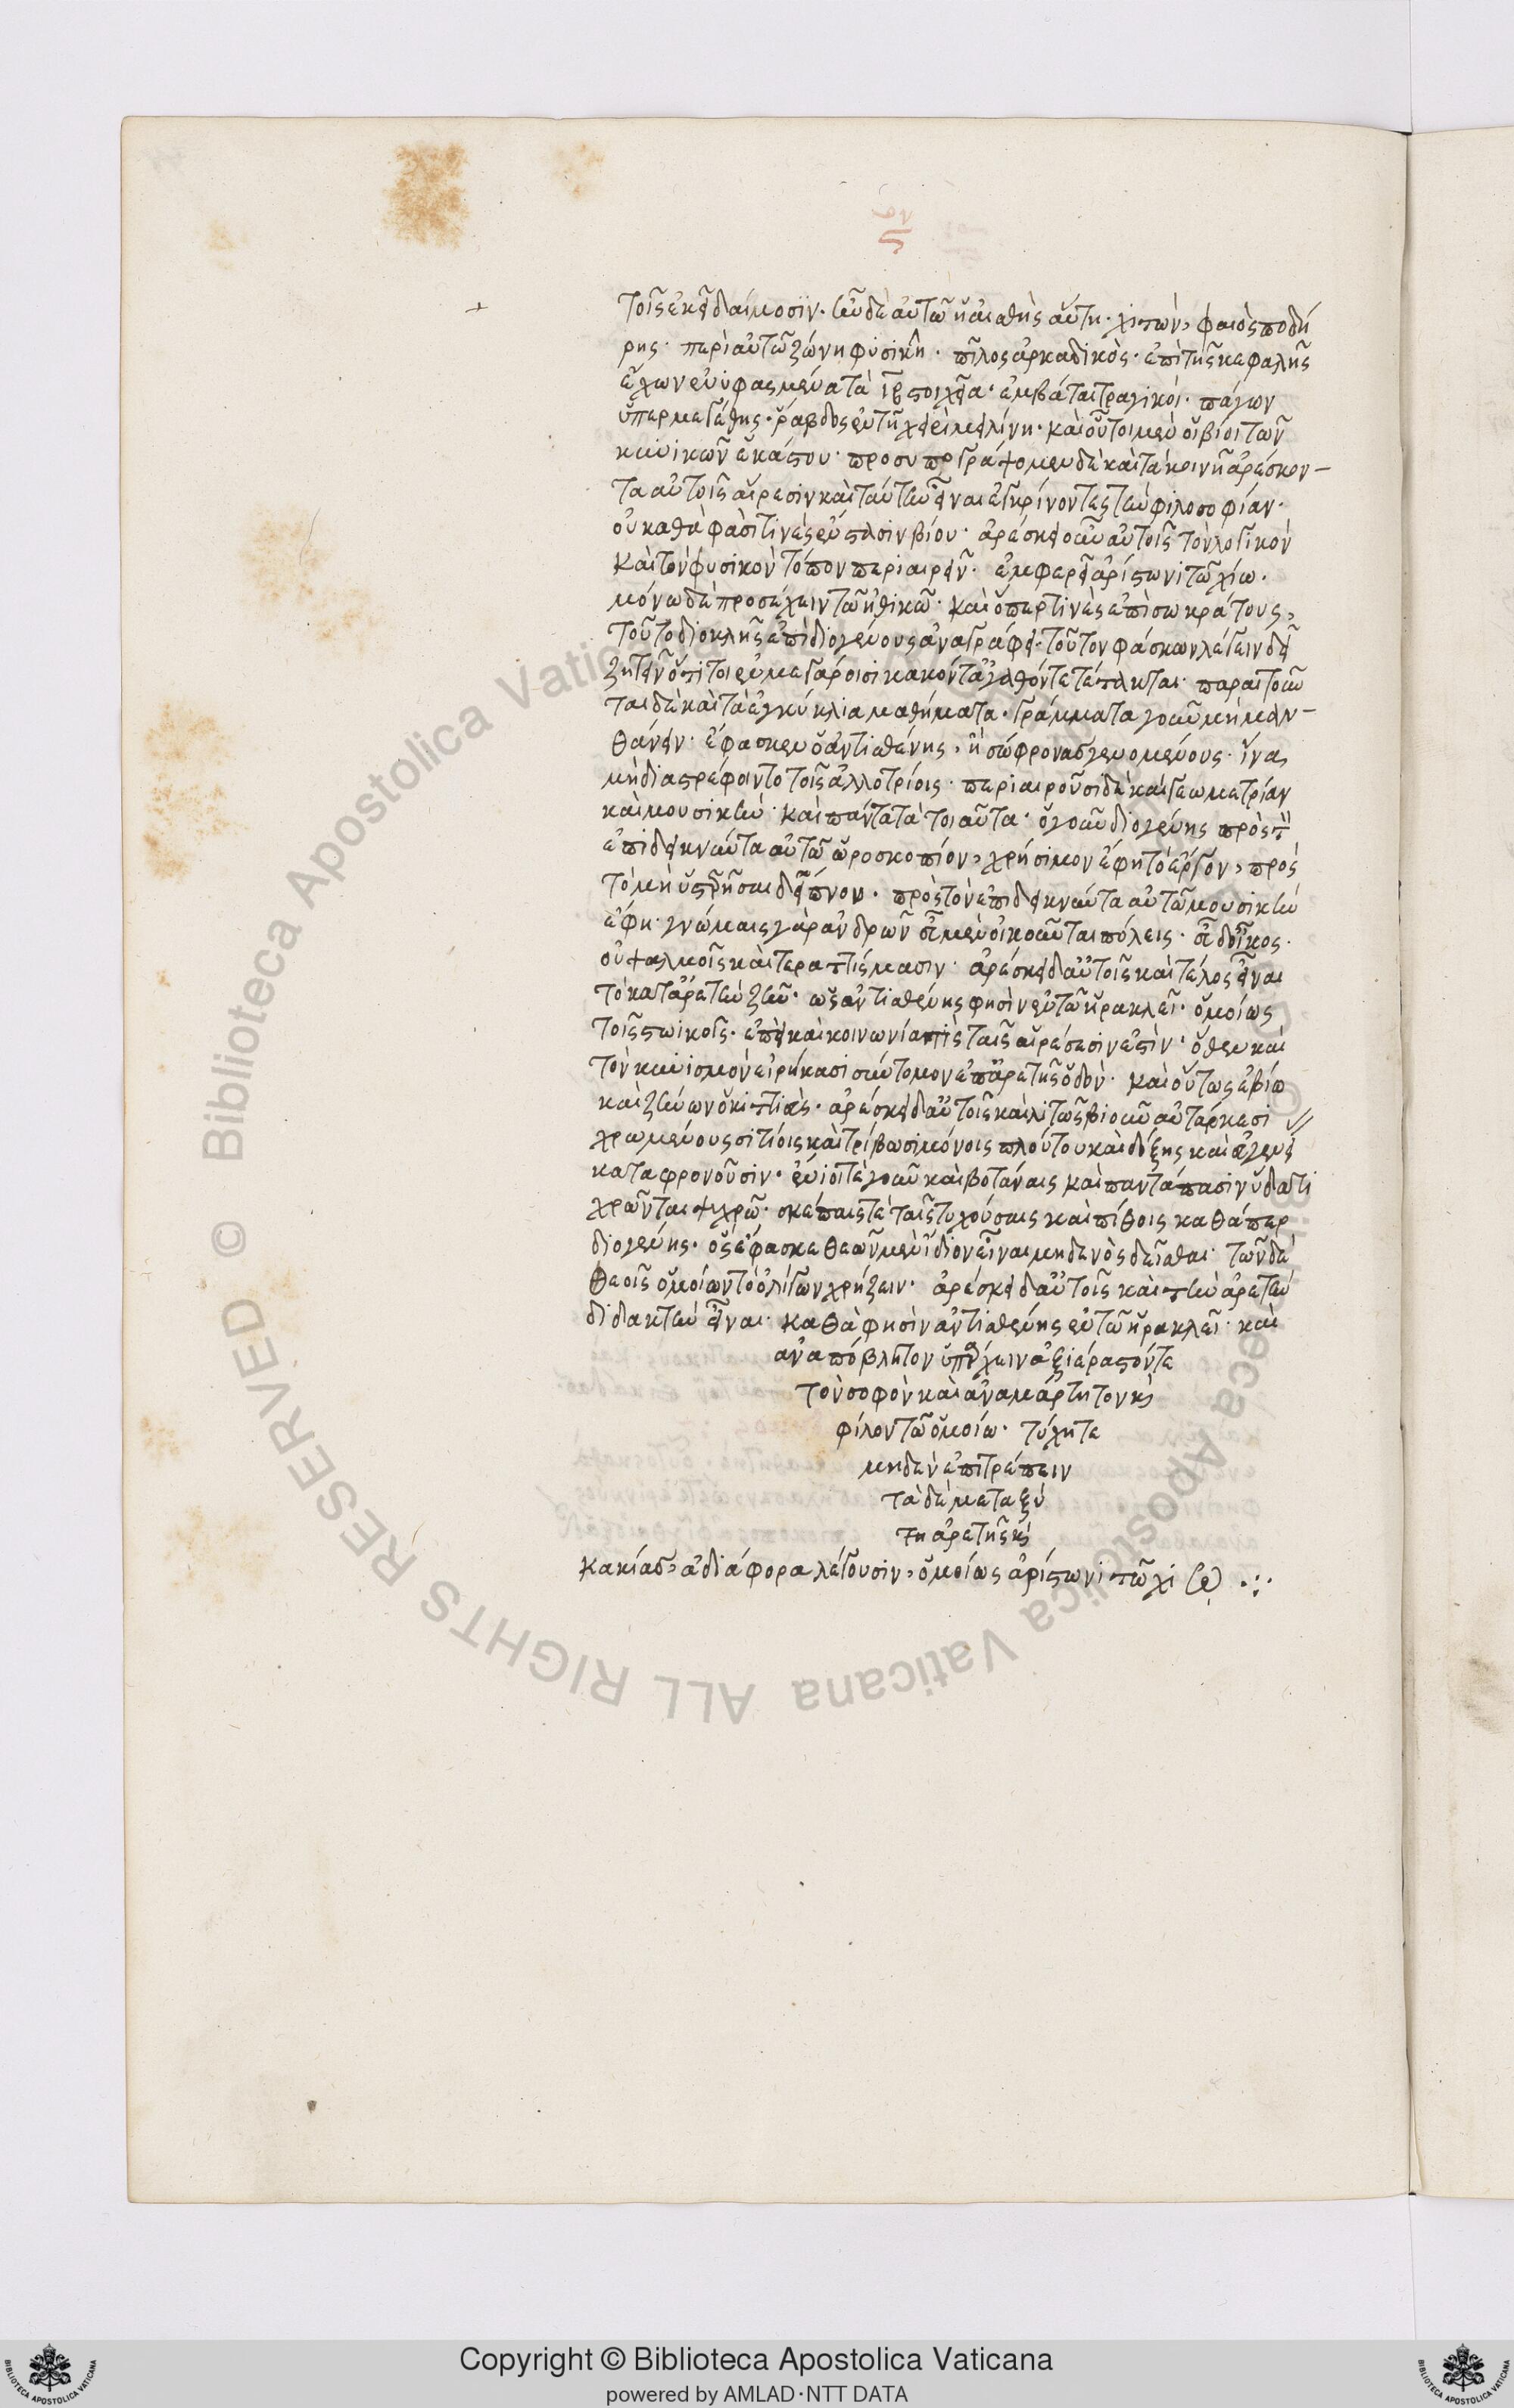 τοῖς ἐκεῖ δαίμοσιν. ἦν δὲ αὐτῶ ἡ ἐσθὴς αὕτη. χιτὼν, φαιὸς ποδή
ρης. περὶ αὐτῶ ζώνη φυσικὴ. πῖλος ἀρκαδικὸς. ἐπὶ τῆς κεφαλῆς
ἔχων ἐνυφασμένα τὰ ιβ στοιχεῖα. ἐμβάται τραγικοί. πώγων
ὑπερμεγέθης. ῥάβδος ἐν τῆ χειρὶ μειλίνη. καὶ οὗτοι μὲν οἱ βίοι τῶν
κυνικῶν ἑκάστου. προσυπογράψομεν δὲ καὶ τὰ κοινῆ ἀρέσκον-
τα αὐτοῖς αἵρεσιν καὶ ταύτην εἶναι ἐγκρίνοντες τὴν φιλοσοφίαν.
οὐ καθὰ φασί τινὲς ἔνστασιν βίου. ἀρέσκει οὖν αὐτοῖς τὸν λογικὸν
καὶ τὸν φυσικὸν τόπον περιαιρεῖν. ἐμφερεῖ ἀρίστωνι τῶ χίω.
μόνω δὲ προσέχειν τῶ ἠθικῶ. καὶ ὅπερ τινὲς ἐπὶ σωκράτους,
τοῦτο διοκλῆς ἐπὶ διογένους ἀναγράφει. τοῦτον φάσκων λέγειν δεῖ
ζητεῖν ὅττι τοι ἐν μεγάροισι κακόν τ' ἀγαθόν τε τέτυκται. παραιτοῦν
ται δὲ καὶ τὰ ἐγκύκλια μαθήματα. γράμματα γοῦν μὴ μαν-
θάνειν. ἔφασκεν ὁ ἀντισθένης, ἢ σώφρονας γενομένους. ἵνα
μὴ διαστρέφοιντο τοῖς ἀλλοτρίοις. περιαιροῦσι δὲ καὶ γεωμετρίαν
καὶ μουσικὴν. καὶ πάντα τὰ τοιαῦτα. ὁ γοῦν διογένης πρὸς τὸν
ἐπιδεικνύντα αὐτῶ ὡροσκοπίον, χρήσιμον ἔφη τὸ ἔργον, πρὸς
τὸ μὴ ὑστερῆσαι δεῖπνον. πρὸς τὸν ἐπιδεικνύντα αὐτῶ μουσικὴν
ἔφη. γνώμαις γὰρ ἀνδρῶν εὖ μὲν οἰκοῦνται πόλεις. εὖ δ' οἶκος.
οὐ ψαλμοῖς καὶ τερατίσμασιν. ἀρέσκει δ' αὐτοῖς καὶ τέλος εἶναι
τὸ κατ' ἀρετὴν ζῆν. ὡς ἀντισθένης φησὶν ἐν τῶ ἡρακλεῖ. ὁμοίως
τοῖς στωικοῖς. ἐπεὶ καὶ κοινωνία τις ταῖς αἱρέσεσιν ἐστὶν. ὅθεν καὶ
τὸν κυνισμὸν εἰρήκασι σύντομον ἐπ' ἀρετῆς ὁδὸν. καὶ οὕτως ἐβίω
καὶ ζήνων ὁ κιττιὰς. ἀρέσκει δ' αὐτοῖς καὶ λιτῶς βιοῦν αὐτάρκεσι
χρωμένους σιτίοις καὶ τρίβωσι μόνοις πλούτου καὶ δόξης καὶ εὐγενεί
καταφρονοῦσιν. ἔνιοί τε γοῦν καὶ βοτάναις καὶ παντάπασιν ὕδατι
χρῶνται ψυχρῶ. σκέπαις τὲ ταῖς τυχούσαις καὶ πίθοις καθάπερ
διογένης. ὃς ἔφασκε θεῶν μὲν ἴδιον εἶναι μηδενὸς δεῖσθαι. τῶν δὲ
θεοῖς ὁμοίων τὸ ὀλίγων χρήζειν. ἀρέσκει δ' αὐτοῖς καὶ τὴν ἀρετὴν
διδακτὴν εἶναι. καθὰ φησὶν ἀντισθένης ἐν τῶ ἡρακλεῖ. καὶ
ἀναπόβλητον ὑπάρχειν ἀξιέραστόν τε
τὸν σοφὸν καὶ ἀναμάρτητον κὶ
φίλον τῶ ὁμοίω. τύχη τε
μηδὲν ἐπιτρέπειν
τὰ δὲ μεταξὺ
τῆ ἀρετῆς κὶ
κακίας, ἀδιάφορα λέγουσιν, ὁμοίως ἀρίστωνι τῶ χίω .:·